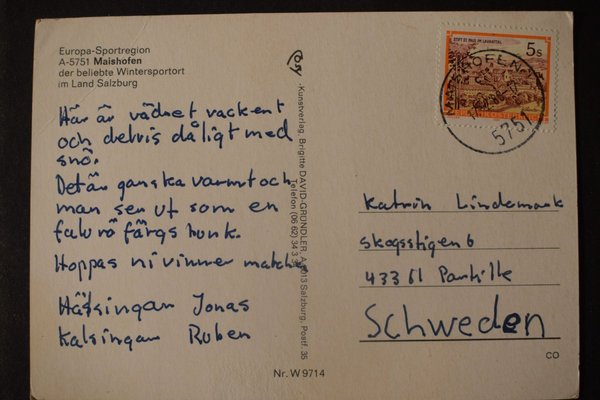 Europa-Sportregion
A-5751 Maishofen
der beliebte Wintersportort
im Land Salzburg
Här är vädret vackert
och delvis dåligt med
snö.
Det är ganska varmt och
man ser ut som en
falu rö färgs burk.
Hoppas ni vinner matchen
Hälsingar Jonas
Kalsingar Ruben
Kunstverlag, Brigitte DAVID-GRÜNDLER, A-5013 Salzburg, Postf. 35
Telefon (06 62) 34 3
Nr. W 9714
STIFT ST. PAUL IM LAVANTTAL
5s
5751
Katrin Lindemark
Skogsstigen 6
433 61 Partille
Schweden
CO